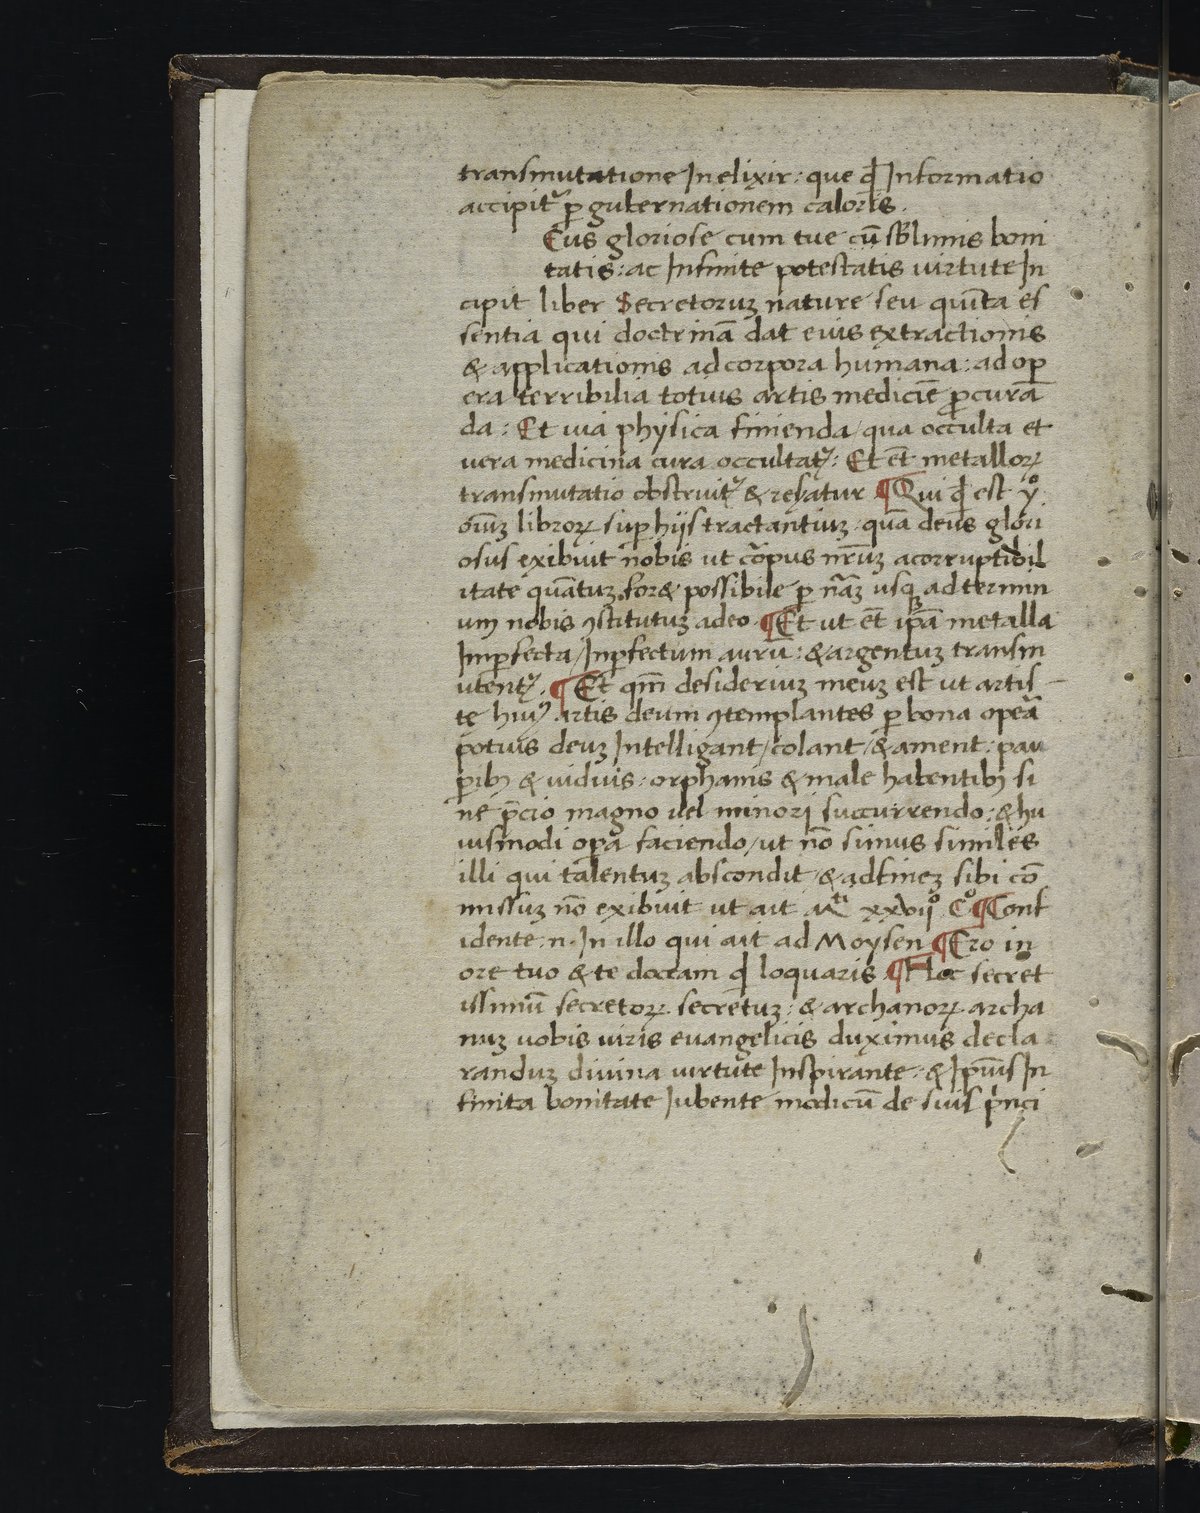 transmutatione In elixir: que qđ Informatio
accipit᷑ ꝑ gubernationem caloris.
Eus gloriose cum tue cū sb̄limis boni
tatis: ac Infinite potestatis uirtute In
cipit liber Secretoruꝫ nature seu quīta es
sentia qui doctrinā dat euis extractionis
& applicationis ad corpora humana: ad op
era terribilia totius artis mediciē ꝓcurā
da: Et uia physica finienda/qua occulta et
uera medicina cura occultat᷑: Et ēt metalloꝝ
transmutatio obstruit᷑ & resatur ¶Qui qđ est yº
oīuꝫ libroꝝ suꝑ hijs tractantiuꝫ quā deus glori
osus exibuit nobis ut corpus nr̄uꝫ a corruptibil
itate quātuꝫ fore possibile ꝑ nāꝫ usqꝫ ad termin
um nobis ꝯstitutuꝫ adeo ¶Et ut ēt ip̄a metalla
Imꝑfecta/Inꝑfectum aurū: & argentuꝫ transm
utent᷑. ¶Et qm̄ desideriuꝫ meuꝫ est ut artis
te huiꝰ artis deum ꝯtemplantes ꝑ bona opera
potius deuꝫ Intelligant/colant/& ament: pau
ꝑibꝫ & uiduis: orphanis & male habentibꝫ si
ne p̄cio magno uel minori succurrendo: & hu
iusmodi oꝑa faciendo/ut nō simus similes
illi qui talentuꝫ abscondit & ad fineꝫ sibi cō
missuꝫ nō exibuit ut ait xxvijº Cº ¶Conf
idente: n· In illo qui ait ad Moysen ¶Ero in
ore tuo & te doceam qđ loquaris ¶Hoc secret
issimū secretoꝝ secretuꝫ: & archanoꝝ archa
nuꝫ uobis uiris euangelicis duximus decla
randuꝫ diuina uirtute Inspirante: & Ipīus In
finita bonitate Iubente modicū de suis p̄nci